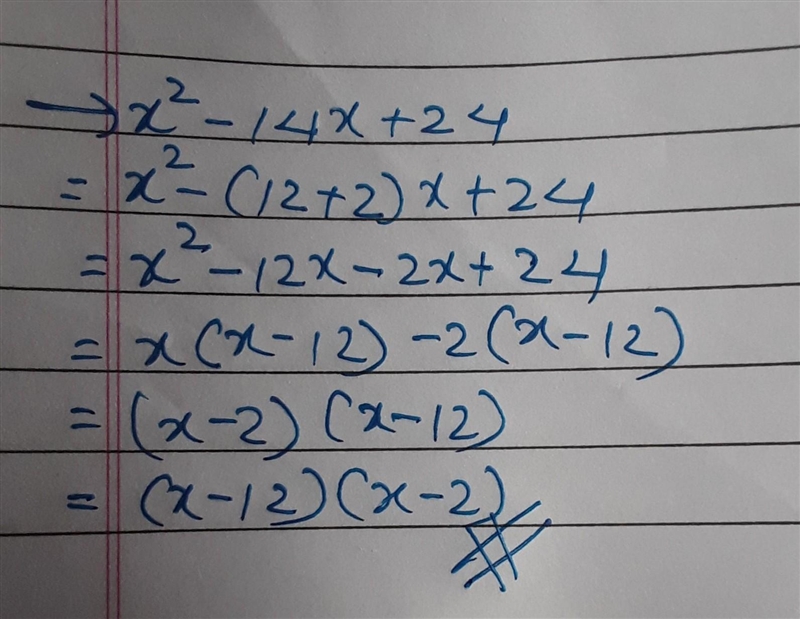 → x² - 14x + 24
= x² - (12+2)x + 24
= x² - 12x - 2x + 24
= x(x-12) - 2(x-12)
= (x-2) (x-12)
= (x-12)(x-2)